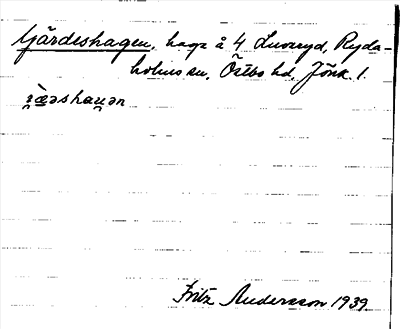 Gärdeshagen, hage å 4 Luvaryd, Ryda-
holms sn, Östbo hd, Jönk. l.
Fritz Andersson 1939.